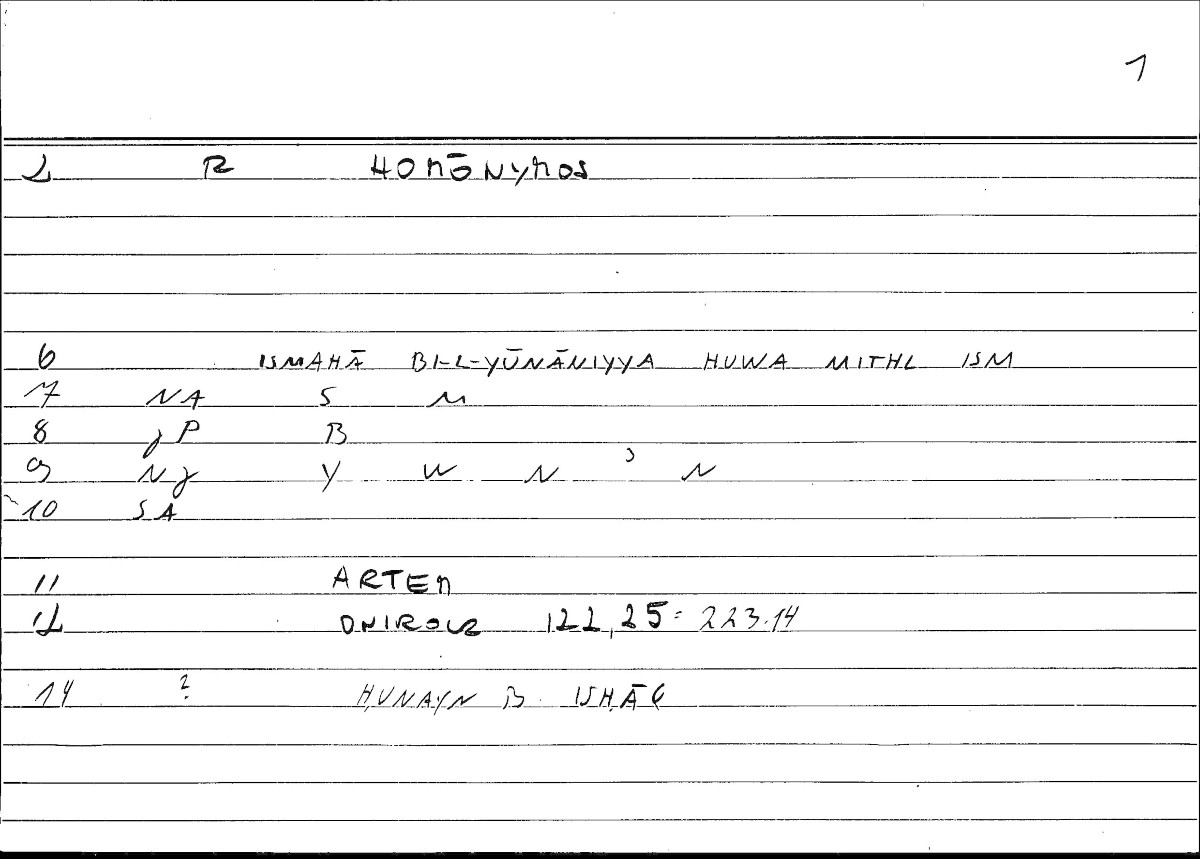 1
2 R HOMŌNYMOS
6 ISMAHĀ BI-L-YŪNĀNIYYA HUWA MITHL ISM
7 NA S M
8 JP B
9 NJ Y W N ʾ N
10 SA
11 ARTEM
12 ONIROCR 122,25 = 223.14
14 ? ḤUNAYN B. ISḤĀQ